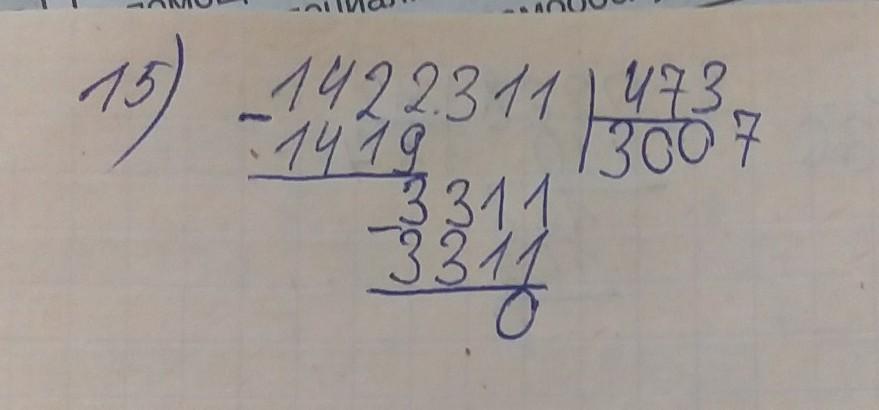 15) -1422311 | 473
1419 | 3007
-3311
3311
0